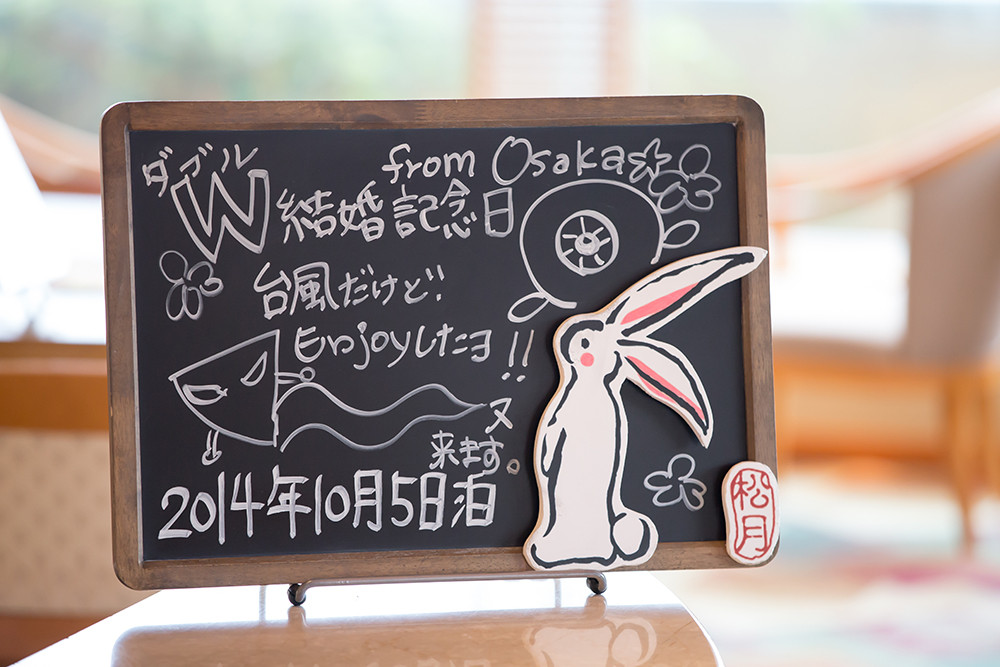 from Osaka
ダブル
W結婚記念日
台風だけど!!
Enjoyしたヨ!!
又
来ます。
2014年10月5日泊
松月